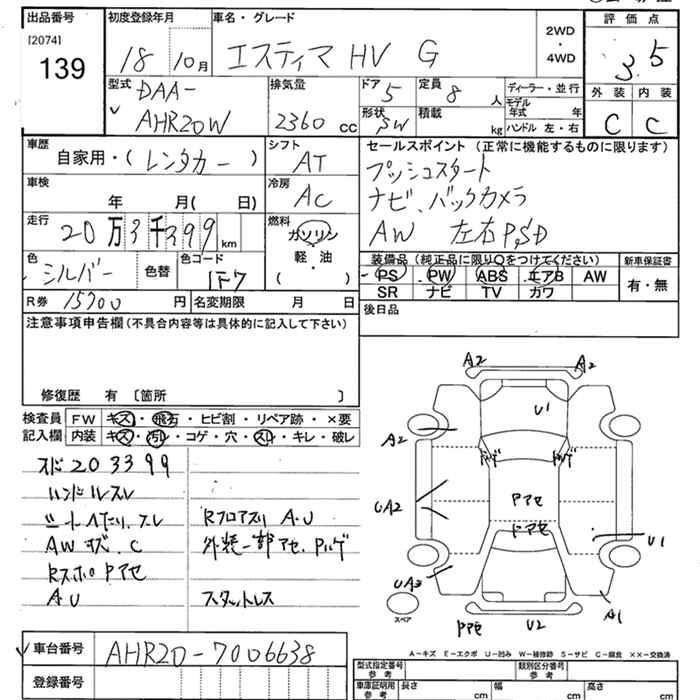 出品番号
[2074]
139
初度登録年月
18 10月
車名・グレード
エスティマ HV G
2WD
・
4WD
評価点
3.5
外装 内装
C C
型式
DAA-
AHR20W
排気量
2360 cc
ドア 5
形状 SW
定員 8 人
積載 kg
ディーラー・並行
モデル年式 年
ハンドル 左・右
車歴
自家用・(レンタカー)
シフト
AT
セールスポイント(正常に機能するものに限ります)
プッシュスタート
ナビ、バックカメラ
AW 左右PSD
車検
年 月( 日)
冷房
AC
走行
20万3千399 km
燃料
ガソリン
軽・油
( )
色
シルバー
色替
色コード
1F7
装備品(純正品に限り○をつけてください)
PS PW ABS エアB AW
SR ナビ TV カワ
新車保証書
有・無
R券 15700 円
名変期限 月 日
後日品
注意事項申告欄(不具合内容等は具体的に記入して下さい)
修復歴 有 〔箇所 〕
検査員
記入欄
FW キズ・飛石・ヒビ割・リペア跡・×要
内装 キズ・汚レ・コゲ・穴・スレ・キレ・破レ
スド203399
ハンドルスレ
シートヘタリ、スレ
AWキズ、C
RスポのPアセ
AU
Rフロアスリ A.U
外装一部アセ、Pハゲ
スタットレス
A2 A2
U1
A2
ハゲ ハゲ
Pアセ
UA2
ドアセ
U1
UA3
スペア
Pアセ
U2
A1
A-キズ E-エクボ U-凹み W-補修跡 S-サビ C-腐食 ××-交換済
車台番号
AHR20-7006638
登録番号
型式指定番号
参考
類別区分番号
参考
車庫証明用
参考
長さ cm
幅 cm
高さ cm